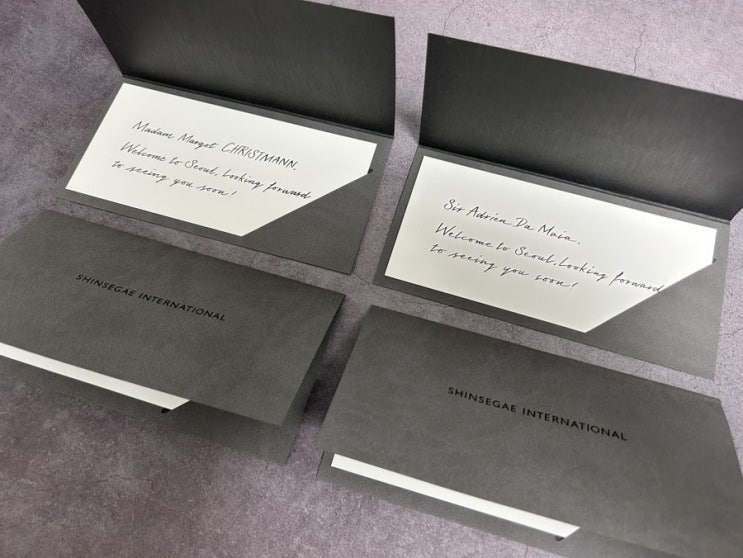 Madam Margot CHRISTMANN,
Welcome to Seoul, Looking forward
to seeing you soon!
Sir Adrien Da Maia,
Welcome to Seoul, Looking forward
to seeing you soon!
SHINSEGAE INTERNATIONAL
SHINSEGAE INTERNATIONAL